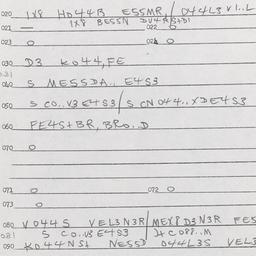 020 1X8 HD44R ESSMR / 044L3 V1..L
1X8 BESSN DV4A/S+D1
021 — 022 0
023 0 024 0
030 D3 K044,FE
031
040 S MESSDA.. E4S3
050 S CO..V3E4S3/S CN044..XDE4S3
060 FE4S+BR, BRO..D
070 0
071 0 072 0
073 0
080 V044S VEL3N3R/MEX8D3N3R FES
081 S CO..V3E4S3 2+COP8..M
090 K044NS+ NESSD 044L3S VEL3